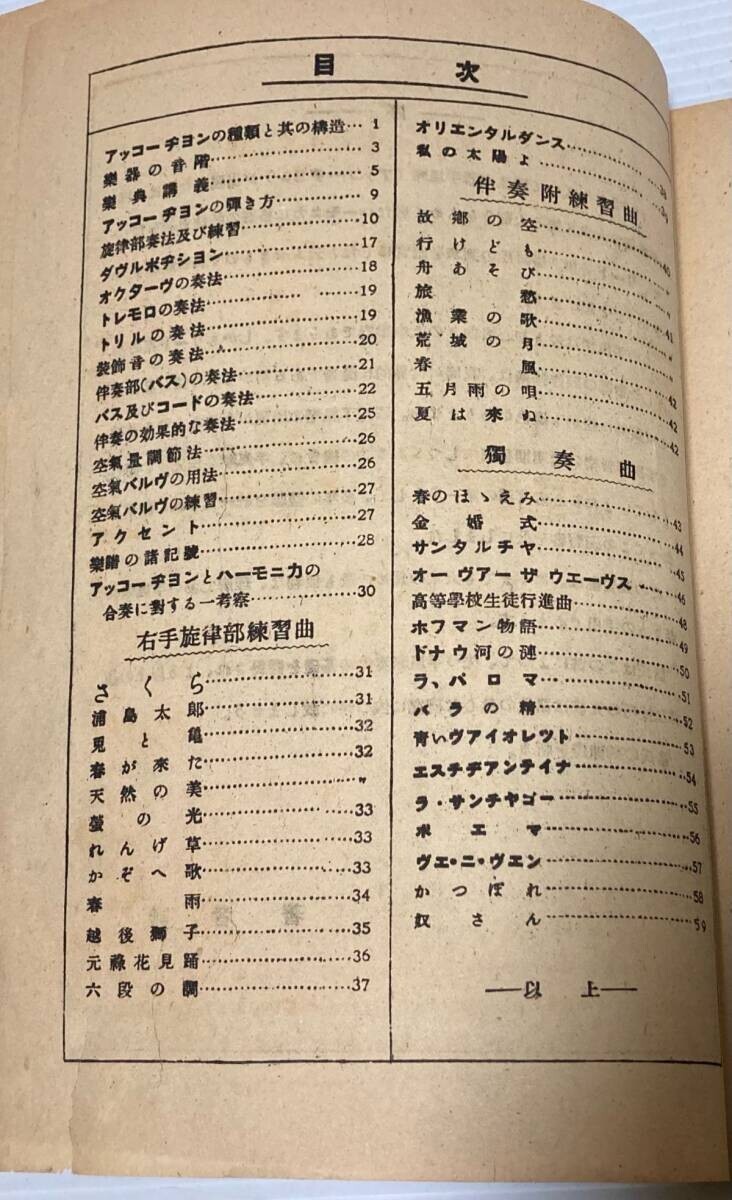 目次
アッコーヂヨンの種類と其の構造…1
樂器の音階……3
樂典講義……5
アッコーヂヨンの彈き方……9
旋律部奏法及び練習……10
ダヴルポヂシヨン……17
オクターヴの奏法……18
トレモロの奏法……19
トリルの奏法……19
裝飾音の奏法……20
伴奏部(バス)の奏法……21
バス及びコードの奏法……22
伴奏の効果的な奏法……25
空氣量調節法……26
空氣バルヴの用法……26
空氣バルヴの練習……27
アクセント……27
樂譜の諸記號……28
アッコーヂヨンとハーモニカの
合奏に對する一考察……30
右手旋律部練習曲
さくら……31
浦島太郎……31
兎と亀……32
春が來た……32
天然の美……〃
螢の光……33
れんげ草……33
かぞへ歌……33
春雨……34
越後獅子……35
元祿花見踊……36
六段の調……37
オリエンタルダンス……38
私の太陽よ……39
伴奏附練習曲
故鄕の空……40
行けども……〃
舟あそび……〃
旅愁……〃
漁業の歌……41
荒城の月……〃
春風……〃
五月雨の唄……42
夏は來ぬ……42
獨奏曲
春のほゝえみ……43
金婚式……44
サンタルチヤ……45
オー ヴアー ザ ウエーヴス……46
高等學校生徒行進曲……48
ホフマン物語……49
ドナウ河の漣……50
ラ、パロマ……51
バラの精……52
靑いヴアイオレツト……53
エスチヂアンテイナ……54
ラ・サンチヤゴー……55
ポエマ……56
ヴエ・ニ・ヴエン……57
かつぽれ……58
奴さん……59
―以上―